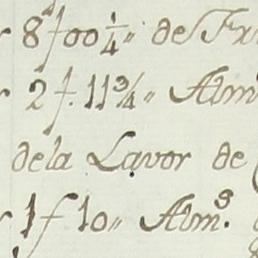 8 f 00 1/4 „ de Fr
2 f. 11 3/4 „ Alm
dela Lavor de
1 f 10 „ Alm.s